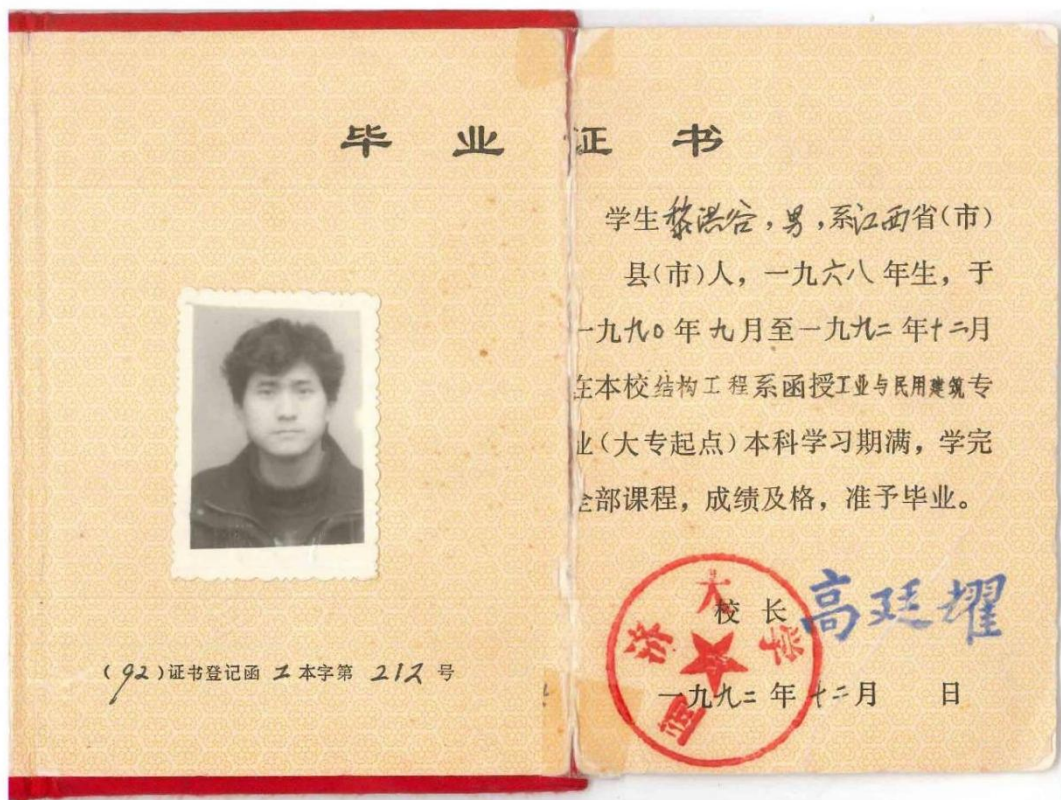 毕业证书
学生黎洪谷，男，系江西省(市)
县(市)人，一九六八年生，于
一九九〇年九月至一九九二年十二月
在本校结构工程系函授工业与民用建筑专
业(大专起点)本科学习期满，学完
全部课程，成绩及格，准予毕业。
校长 高廷耀
同济大学
一九九二年十二月 日
(92)证书登记函工本字第 212 号